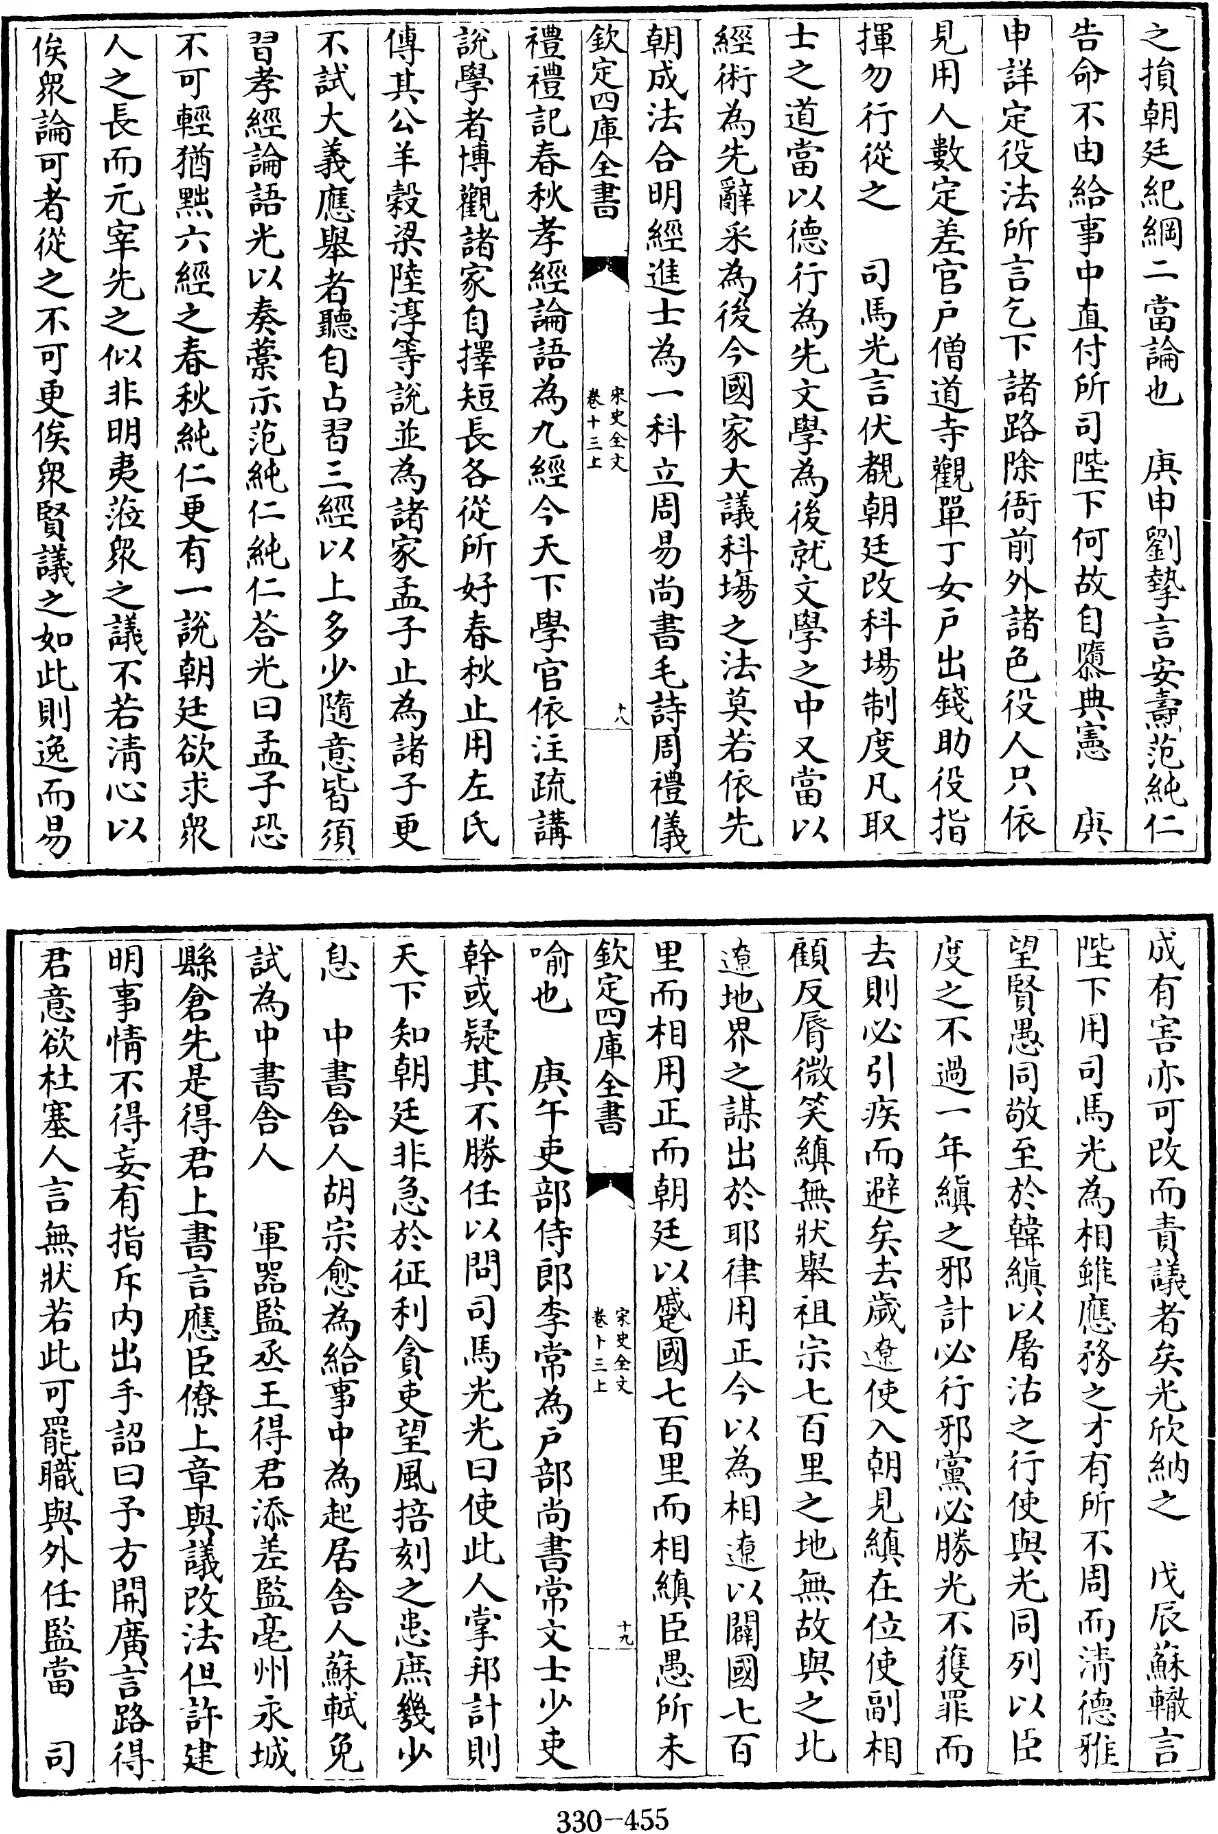 之損朝廷紀綱二當論也　庚申劉摯言安燾范純仁
告命不由給事中直付所司陛下何故自隳典憲　庚
申詳定役法所言乞下諸路除衙前外諸色役人只依
見用人數定差官戶僧道寺觀單丁女戶出錢助役指
揮勿行從之　司馬光言伏覩朝廷改科場制度凡取
士之道當以德行為先文學為後就文學之中又當以
經術為先辭采為後今國家大議科塲之法莫若依先
朝成法合明經進士為一科立周易尚書毛詩周禮儀
欽定四庫全書
宋史全文
卷十三上
十八
禮禮記春秋孝經論語為九經今天下學官依注疏講
說學者博觀諸家自擇短長各從所好春秋止用左氏
傳其公羊穀梁陸淳等說並為諸家孟子止為諸子更
不試大義應舉者聽自占習三經以上多少隨意皆須
習孝經論語光以奏藁示范純仁純仁荅光曰孟子恐
不可輕猶黜六經之春秋純仁更有一說朝廷欲求衆
人之長而元宰先之似非明夷涖衆之議不若清心以
俟衆論可者從之不可更俟衆賢議之如此則逸而易
成有害亦可改而責議者矣光欣納之　戊辰蘇轍言
陛下用司馬光為相雖應務之才有所不周而清德雅
望賢愚同敬至於韓縝以屠沽之行使與光同列以臣
度之不過一年縝之邪計必行邪黨必勝光不獲罪而
去則必引疾而避矣去歲遼使入朝見縝在位使副相
顧反脣微笑縝無狀舉祖宗七百里之地無故與之北
遼地界之謀出於耶律用正今以為相遼以闢國七百
里而相用正而朝廷以蹙國七百里而相縝臣愚所未
欽定四庫全書
宋史全文
卷十三上
十九
喻也　庚午吏部侍郎李常為戶部尚書常文士少吏
幹或疑其不勝任以問司馬光光曰使此人掌邦計則
天下知朝廷非急於征利貪吏望風掊刻之患庶幾少
息　中書舍人胡宗愈為給事中為起居舍人蘇軾免
試為中書舍人　軍器監丞王得君添差監亳州永城
縣倉先是得君上書言應臣僚上章與議改法但許建
明事情不得妄有指斥内出手詔曰予方開廣言路得
君意欲杜塞人言無狀若此可罷職與外任監當　司
330-455